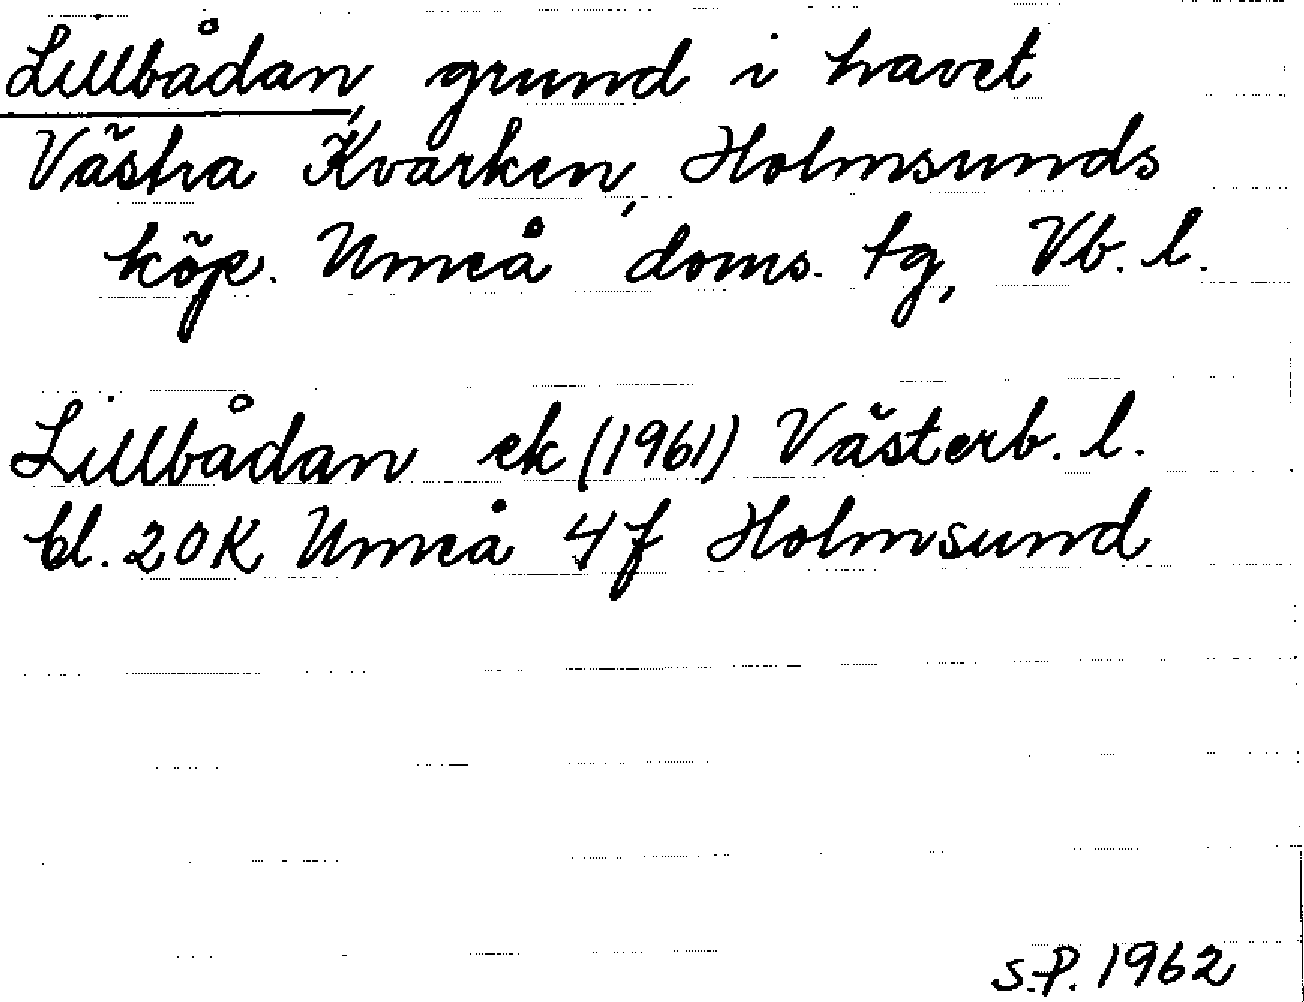 Lillbådan, grund i havet
Västra Kvarken, Holmsunds
köp. Umeå doms. tg, Vb. l.
Lillbådan ek (1961) Västerb. l.
bl. 20K Umeå 4f Holmsund
S.P. 1962